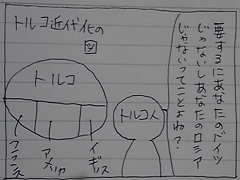 要するにあなたのドイツ
じゃないしあなたのロシア
じゃないってことよね？
トルコ近代化の
図
トルコ
トルコ人
イギリス
アメリカ
フランス